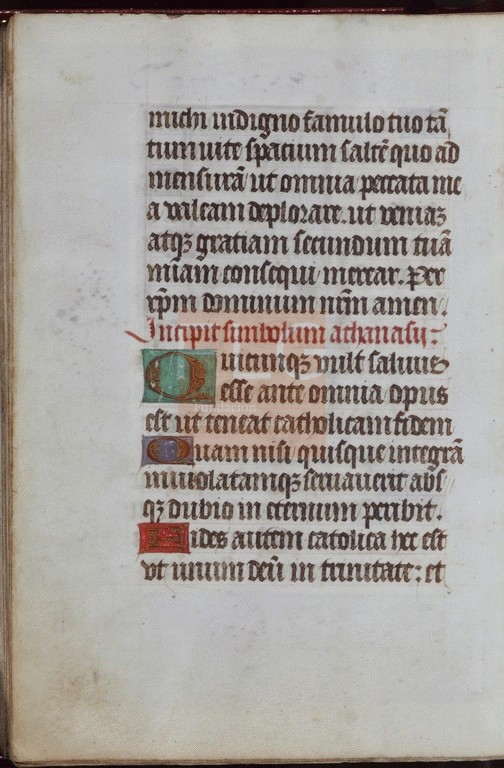 michi indigno famulo tuo tā
tum uite spacium saltē quo ad
mensurā ut omnia peccata me
a valeam deplorare. ut veniaꝫ
atqꝫ gratiam secundum tuā
mīam consequi merear. Per
xp̄m dominum nr̄m amen.
Incipit simbolum athanasij:
Quicunqꝫ vult saluus
esse ante omnia opus
est ut teneat catholicam fidem
Quam nisi quisque integrā
inuiolatamqꝫ seruauerit abs
qꝫ dubio in eternum peribit.
Fides autem catolica hec est
vt unum deū in trinitate: et
Fundación